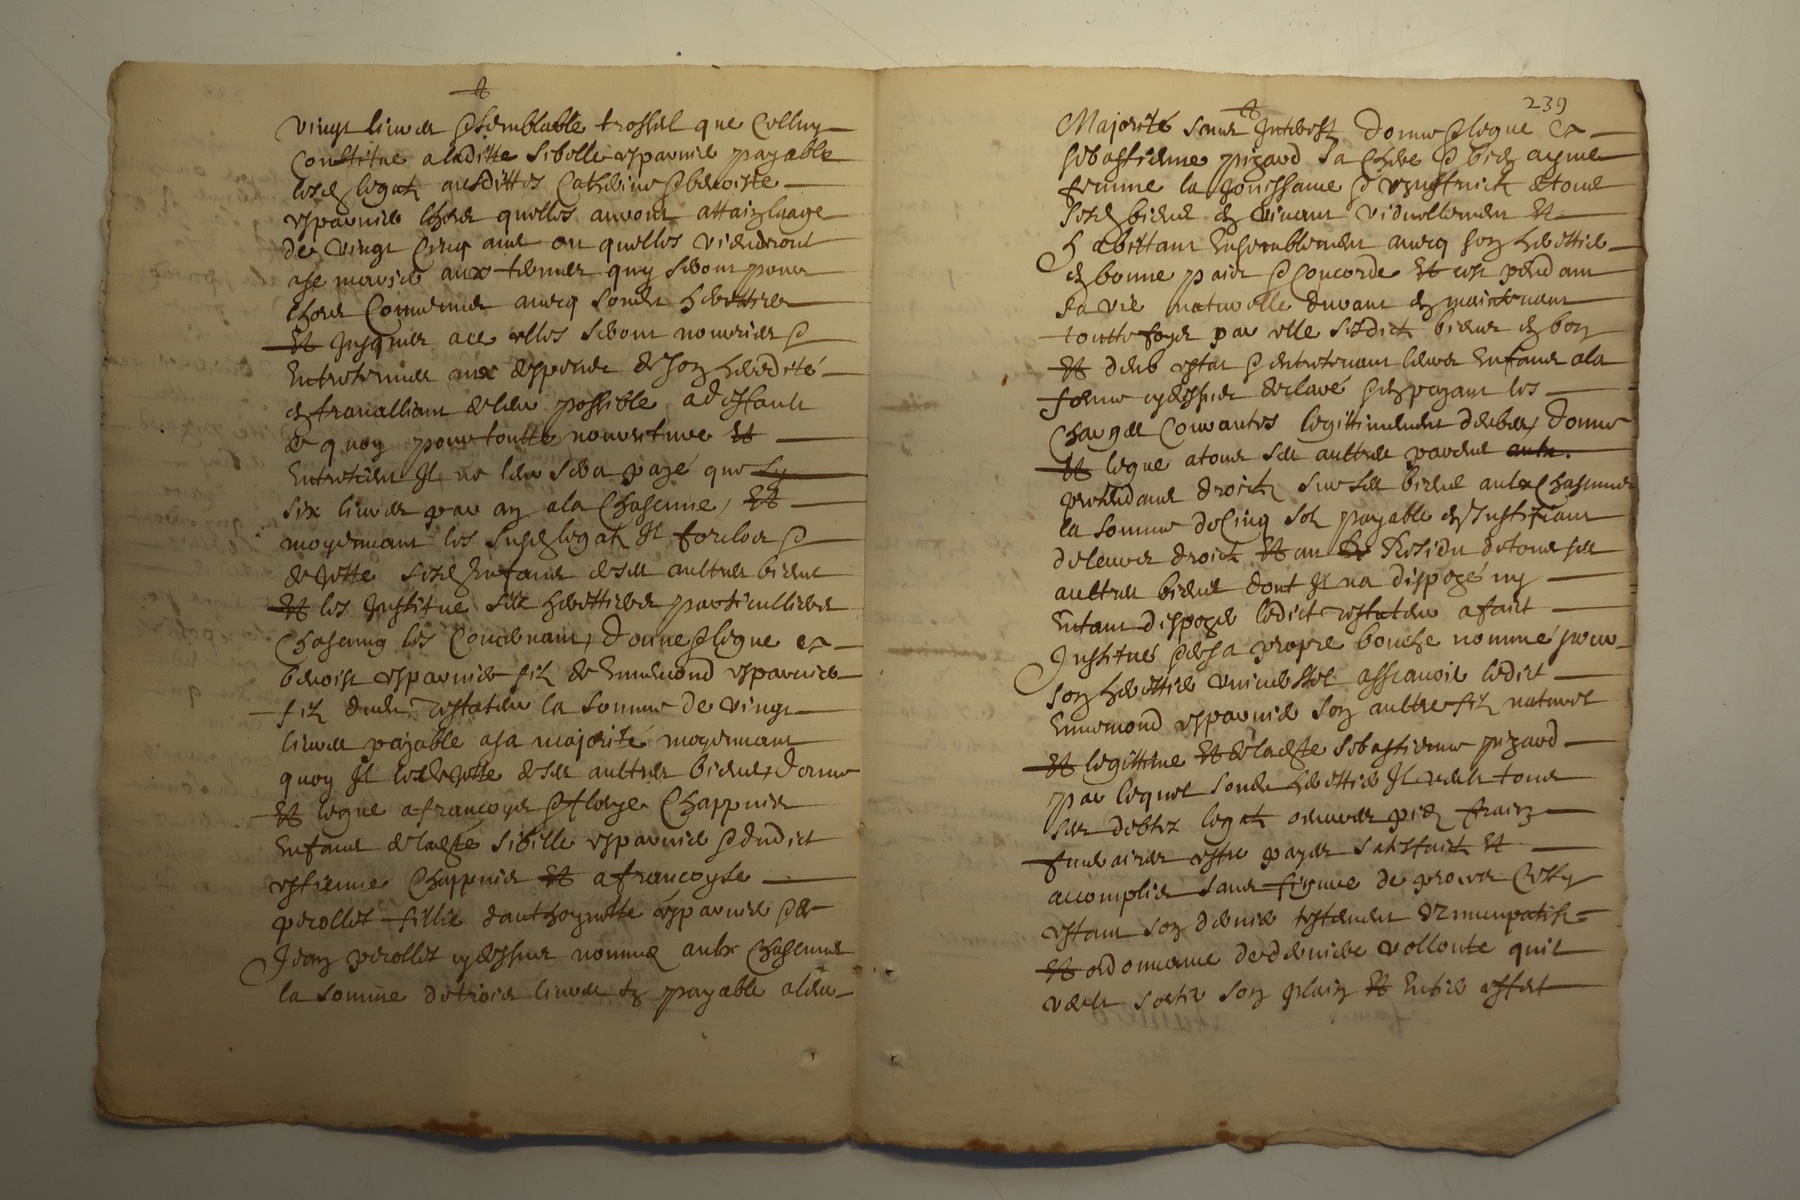 vingt livres & semblable trossel que celluy
constitue a laditte Sibelle esparnier payable
lesd legatz ausdittes Catherine & benoiste
esparnier lhors quelles auront attainz laage
de vingt cinq ans ou quelles viendront
ase marier aux termes quy seront pour
lhors Convenues avecq sond heritier
Et jusques ace elles seront nourries &
Entretenues aux despens de son heredité
en travalliant deleur possible adeffault
de quoy pour toutte nourriture Et
Entretien Il ne leur sera payé que
six livres par an ala Chascune, Et
moyennant les susd legatz Il forclos &
dejette sesd Enfans deses aultres biens
Et les Institue ses heritiers particulliers
Chascung les Concernant, donne & legue a
benoist esparnier filz de Ennemond esparnier
filz dud Testateur la somme de vingt
livres payable asa majorité moyennant
quoy Il le dejette deses aultres biens, donne
Et legue a francoys & Chappuis
Enfans deladte Sibille esparnier & dudict
estienne Chappuis Et a francoyse
perollet fillie danthoynette esparnier & de
Jean perollet cydessus nommé aulx Chascunes
la somme detrois livres tz payable aleur
239
Majorité sans Interestz Donne & legue a
Sebastienne pizard sa Chere & bien aymee
femme la jouissance & usuffruict detous
sesd biens en vivant viduellement Et
habittant Ensemblement avecq son heritier
en bonne paix & Concorde Et ce pendant
sa vie naturelle durant en maintenant
touttefoys par elle sesdictz biens en bon
Et deub estat & entretenant leurs Enfans ala
forme cydessus declaré & en payant les
Charges Courantes legittimement deubes, donne
Et legue atous ses aultres parens
pretendans droictz sur ses biens aulx Chascuns
la somme de Cinq solz payable en Justifiant
deleurs droictz Et au Residu detous ses
aultres biens dont Il na dispozé ny
Entant dispozer ledict testateur a faict
Institué & desa propre bouche nommé pour
son heritier universel assavoir ledict
Ennemond esparnier son aultre filz naturel
Et legittime Et deladte Sebastienne pizard
par lequel sond heritier Il veult tous
ses debtes legatz oeuvres pies fraiz
funeraires estre payes satisfaictz Et
accomplies sans figure de proces Cecy
estant son dernier testament & nuncupatif
Et ordonnance de derniere vollonte quil
veult sortir son plain Et Entier effect